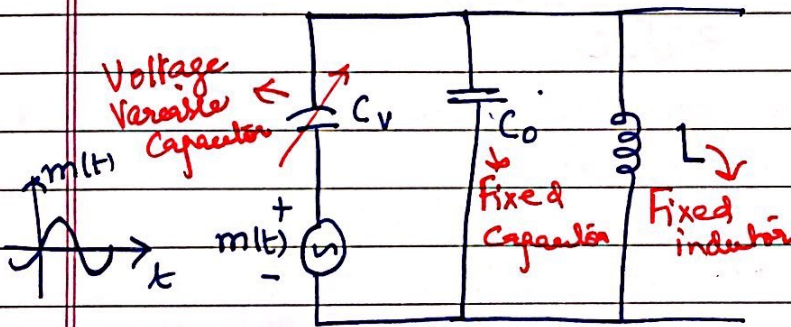 Voltage
Variable
Capacitor
Cv
m(t)
t
m(t)
+
-
Co
Fixed
Capacitor
L
Fixed
inductor